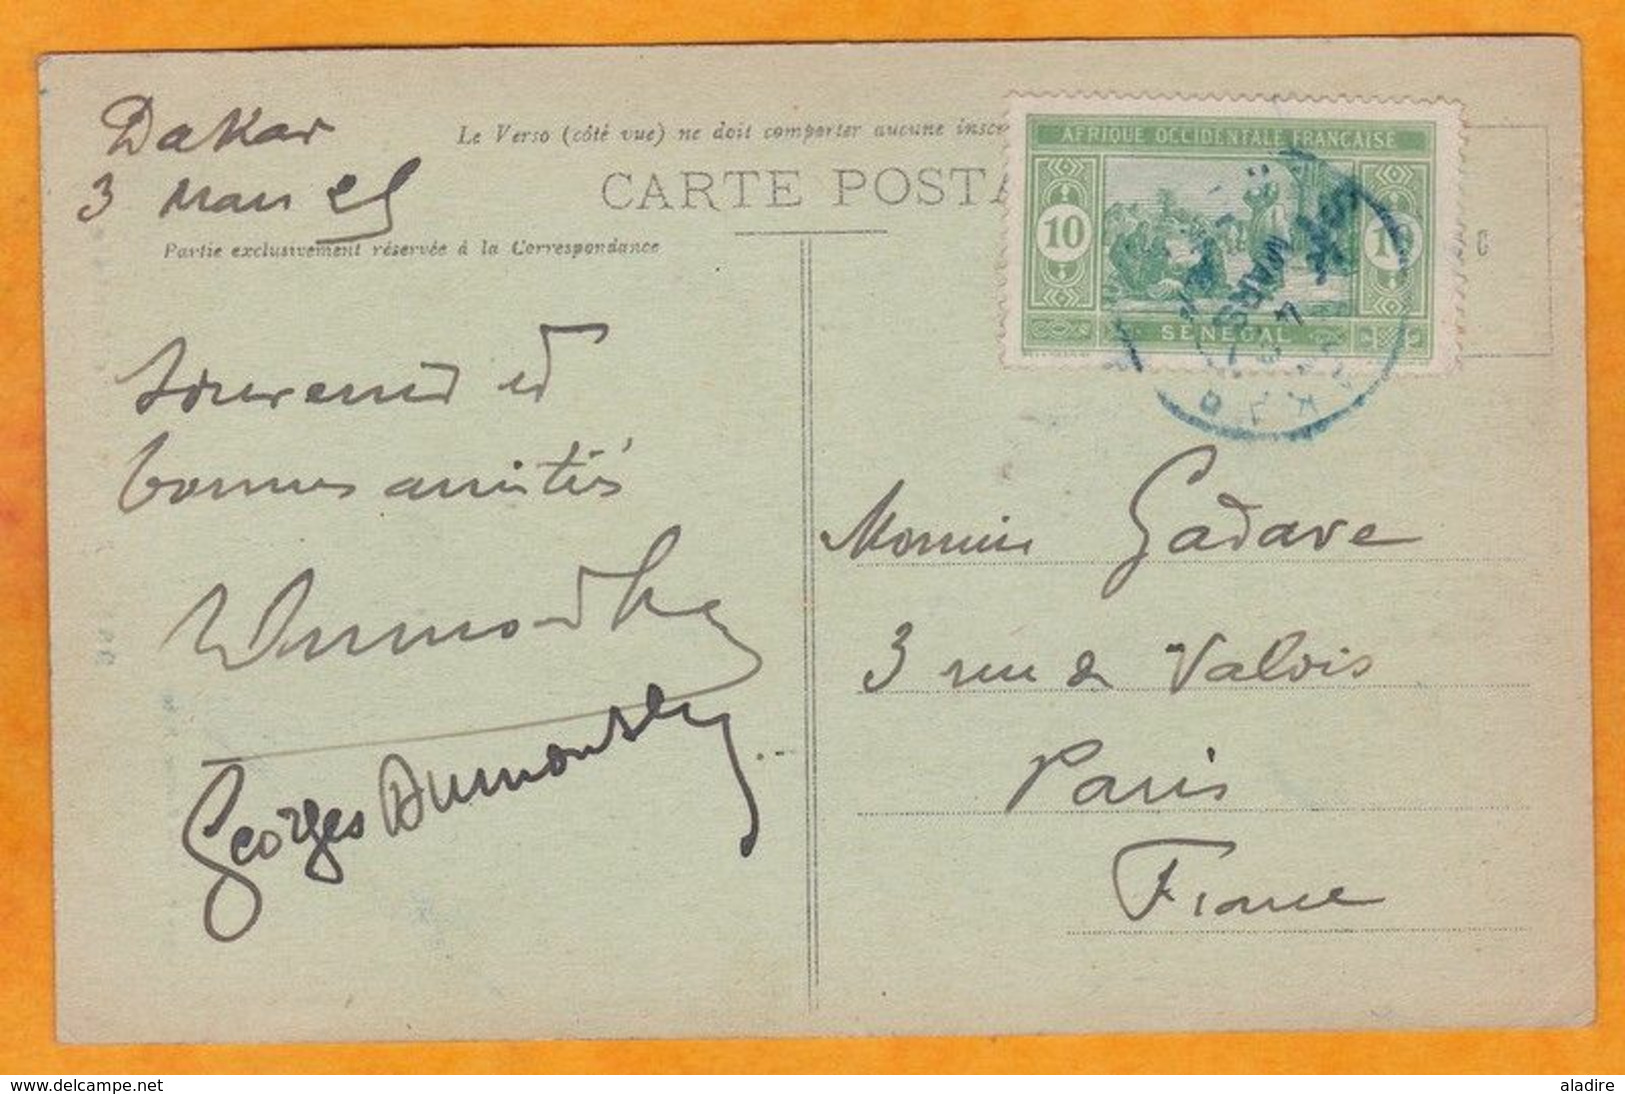 Dakar
3 Mars 25
Le Verso (côté vue) ne doit comporter aucune inscr
CARTE POSTA
Partie exclusivement réservée à la Correspondance
AFRIQUE OCCIDENTALE FRANÇAISE
10 10
SÉNÉGAL
4 MARS
Souvenir et
bonnes amitiés
Georges
Monsieur Gadave
3 rue de Valois
Paris
France
www.delcampe.net
aladire